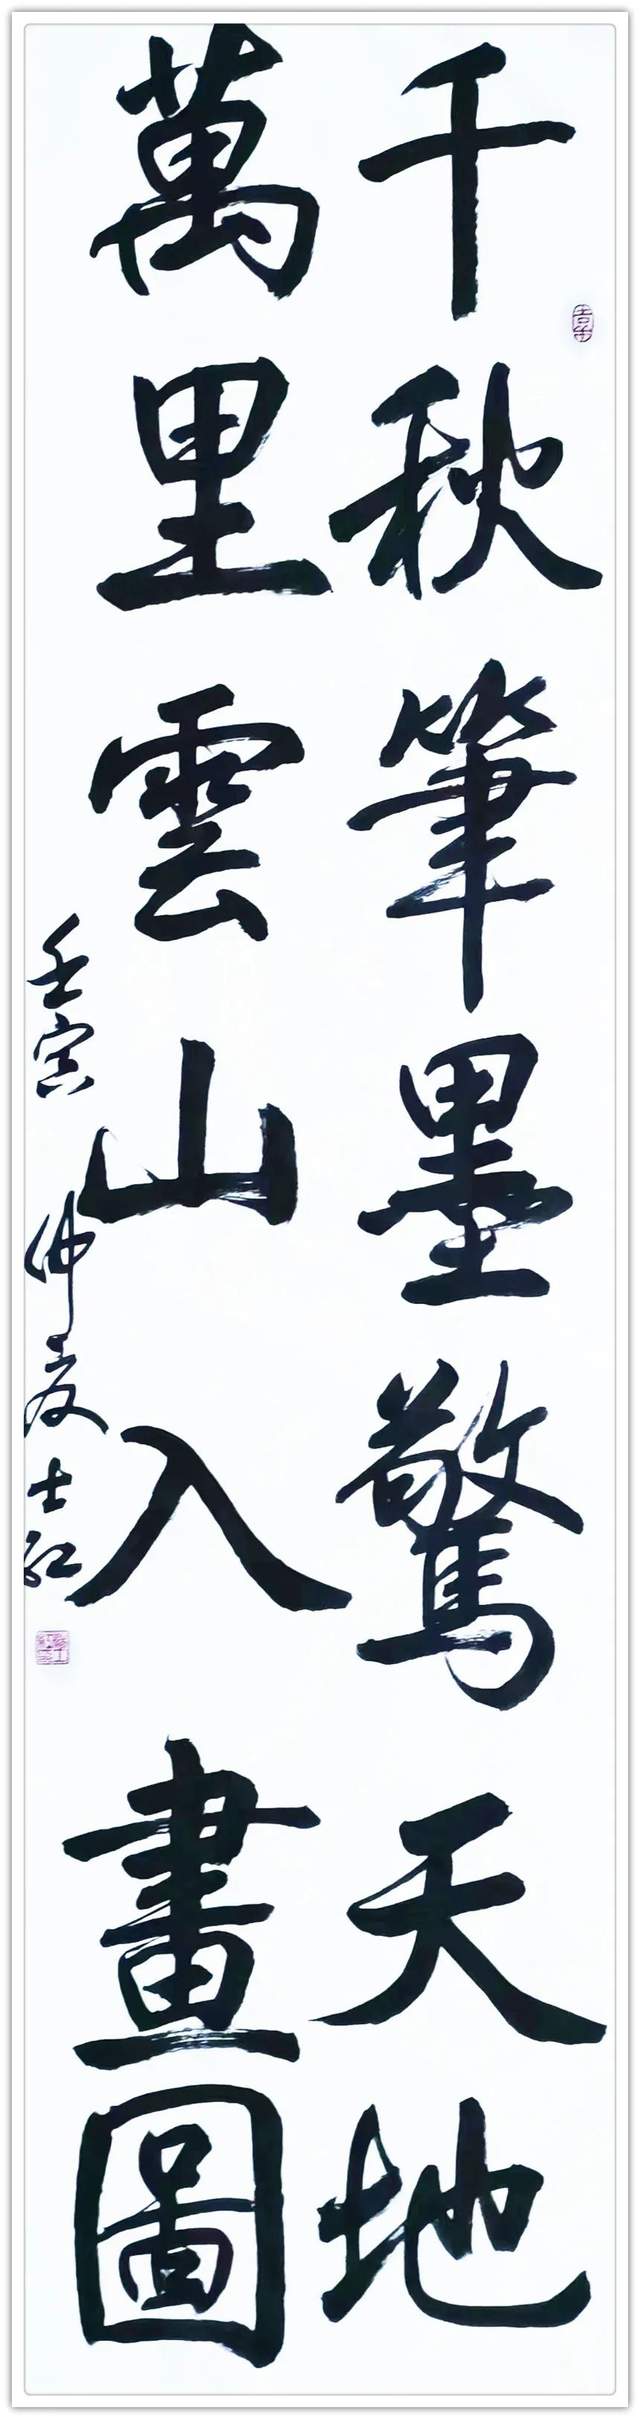 千秋筆墨驚天地
萬里雲山入畫圖
壬寅 仲夏 士紅